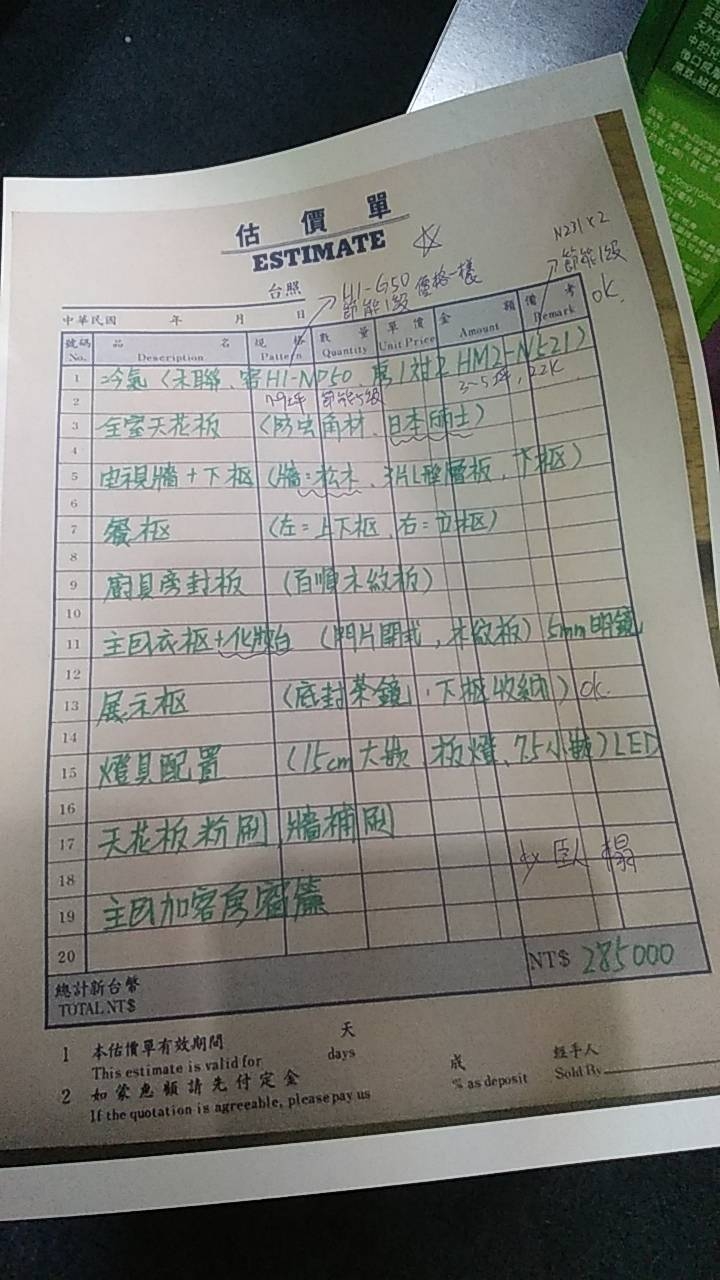 估價單
ESTIMATE ☆
N231×2
節能1級
OK.
台照
HI-G50 價格一樣
節能1級
中華民國 年 月 日
號碼 No. 品名 Description 規格 Pattern 數量 Quantity 單價 Unit Price 金額 Amount 備考 Remark
1 冷氣(禾聯、客HI-NP50、房1対2 HM2-N521)
2 7-9坪 節能5級 3~5坪, 22K
3 全室天花板 (防虫角材、日本麗士)
4
5 电視牆+下柜 (牆=松木、3片L型層板、下柜)
6
7 餐柜 (左=上下柜、右=立柜)
8
9 廚具旁封板 (百順木紋板)
10
11 主臥衣柜+化妝台 (門片開式,木紋板) 5mm明鏡
12
13 展示柜 (底封茶鏡,下柜收納) ok.
14
15 燈具配置 (15cm大嵌、板燈、7.5小嵌) LED
16
17 天花板粉刷、牆補刷
18 臥榻
19 主臥加客房窗簾
20
總計新台幣 TOTAL NT$ NT$ 285000
1 本估價單有效期間 天
This estimate is valid for days
2 如蒙惠顧請先付定金 成 經手人
If the quotation is agreeable, please pay us % as deposit Sold By